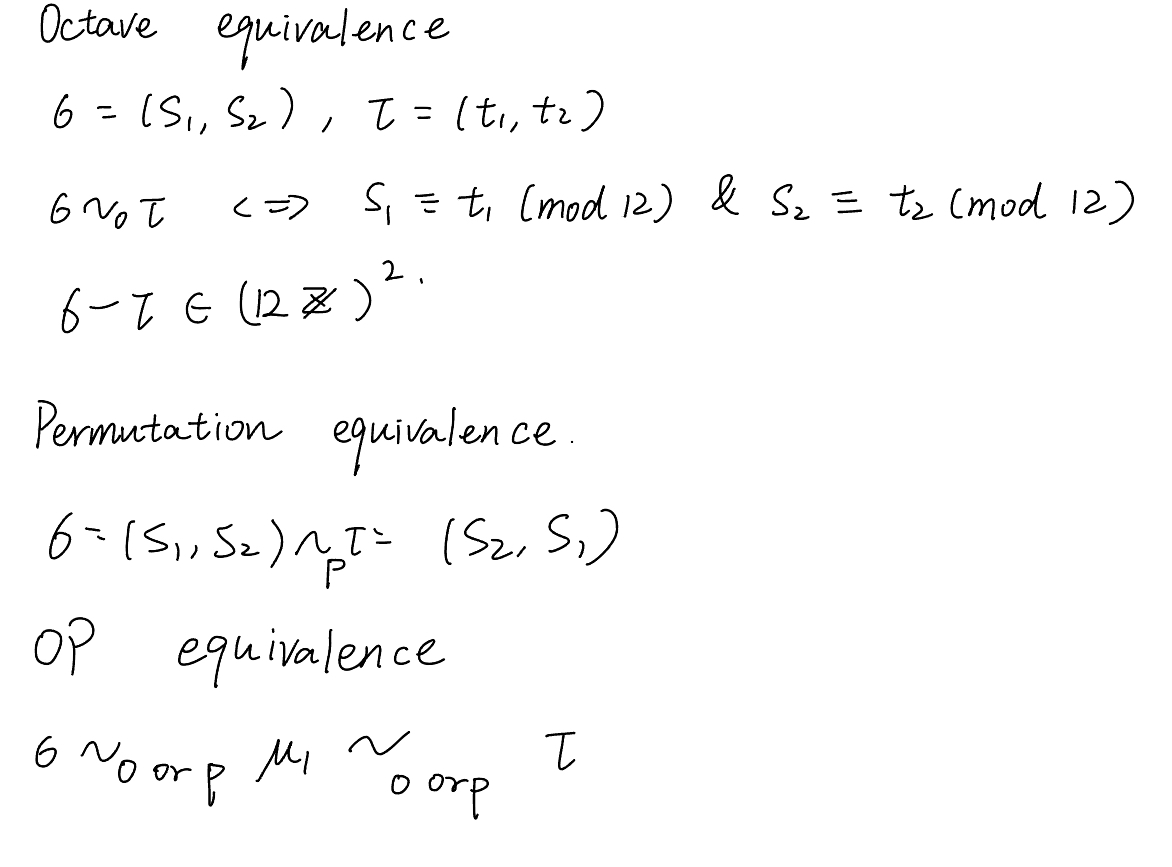 Octave equivalence
σ = (S₁, S₂), τ = (t₁, t₂)
σ ~₀ τ <=> S₁ ≡ t₁ (mod 12) & S₂ ≡ t₂ (mod 12)
σ - τ ∈ (12ℤ)².
Permutation equivalence.
σ = (S₁, S₂) ~ₚ τ = (S₂, S₁)
OP equivalence
σ ~₀ ₒᵣ ₚ μ₁ ~₀ ₒᵣ ₚ τ